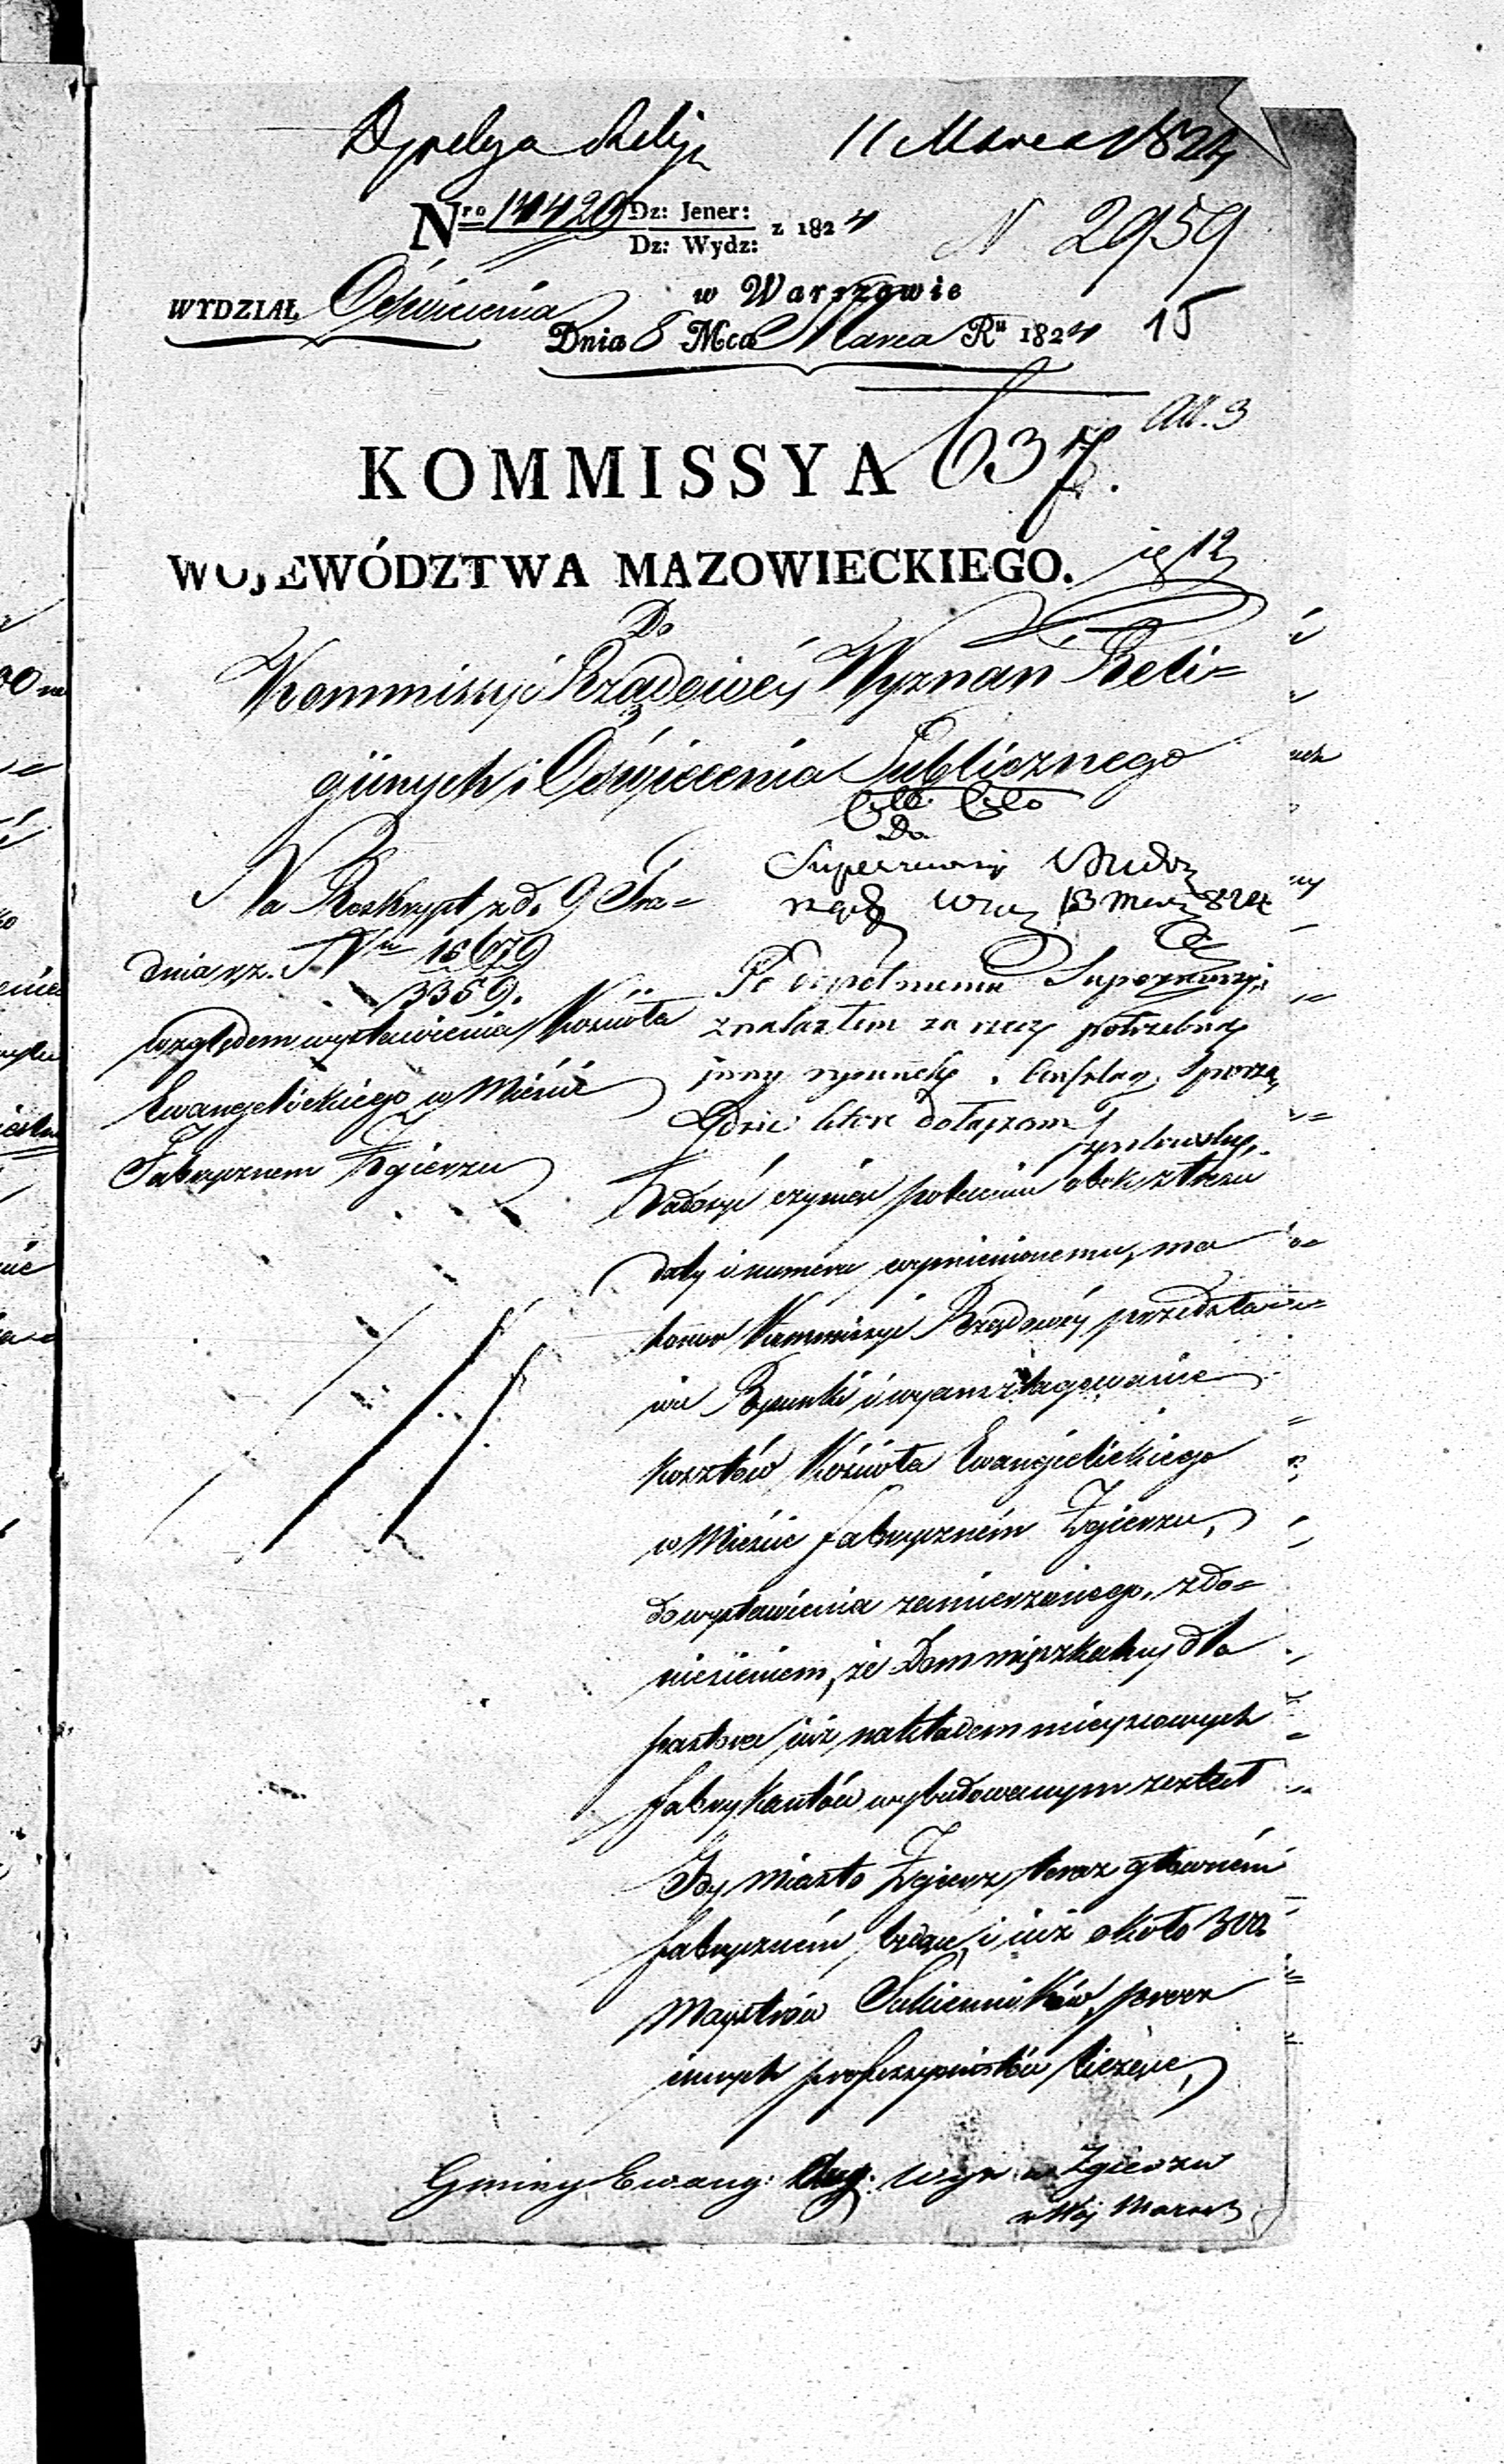 11 Marca 1824
Nro 14420 Dz: Jener: z 1824
Dz: Wydz:
N 2959
WYDZIAŁ Oświecenia
w Warszawie
Dnia 8 Mca Marca Ru 1824
15
All. 3
KOMMISSYA
637.
WOJEWÓDZTWA MAZOWIECKIEGO.
Do
Kommissyi Rządowéy Wyznań Reli=
giinych i Oświecenia Publicznego
Na Reskrypt z d. 9 Gru=
dnia r.z. Nro 15679
13359.
względem wystawienia Kościoła
Ewangelickiego w Mieście
Fabrycznem Zgierzu
Do
Superrewizyi
13 Marc 824
Po dopełnieniu Superrewizyi
znalazłem za rzecz potrzebną
inny rysunek i Anszlag sporzą
dzić które dołączam
Zadosyć czyniąc poleceniu obok z treści
daty i numeru wymienionemu, ma
honor Kommissyi Rządowéy przedstawie=
nie Rysunki i wyanszlagowanie
kosztów Kościoła Ewangielickiego
w Mieście fabryczném Zgierzu,
do wystawienia zamierzonego, z do=
niesieniem, że Dom mieszkalny dla
pastora już nakładem mieyscowych
fabrykantów wybudowanym został
Gdy miasto Zgierz teraz głowném
fabryczném będąc, i już około 300.
Maystrów Sukienników, procz
innych professyonistów licząc,
Gminy Ewang: Aug: Wyz. w Zgierzu
w Woj Mazow